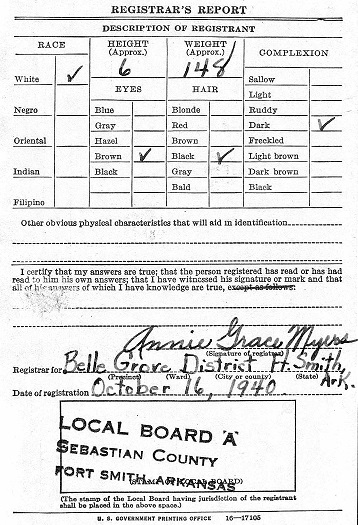 REGISTRAR'S REPORT
DESCRIPTION OF REGISTRANT
RACE HEIGHT (Approx.) WEIGHT (Approx.) COMPLEXION
6 148
White ✓ Sallow
EYES HAIR Light
Negro Blue Blonde Ruddy
Gray Red Dark ✓
Oriental Hazel Brown Freckled
Brown ✓ Black ✓ Light brown
Indian Black Gray Dark brown
Bald Black
Filipino
Other obvious physical characteristics that will aid in identification
I certify that my answers are true; that the person registered has read or has had
read to him his own answers; that I have witnessed his signature or mark and that
all of his answers of which I have knowledge are true, except as follows:
Annie Grace Myers
(Signature of registrar)
Registrar for Belle Grove District Ft. Smith, Ark.
(Precinct) (Ward) (City or county) (State)
Date of registration October 16, 1940
LOCAL BOARD "A"
SEBASTIAN COUNTY
FORT SMITH, ARKANSAS
(STAMP OF LOCAL BOARD)
(The stamp of the Local Board having jurisdiction of the registrant
shall be placed in the above space.)
U. S. GOVERNMENT PRINTING OFFICE 16—17105